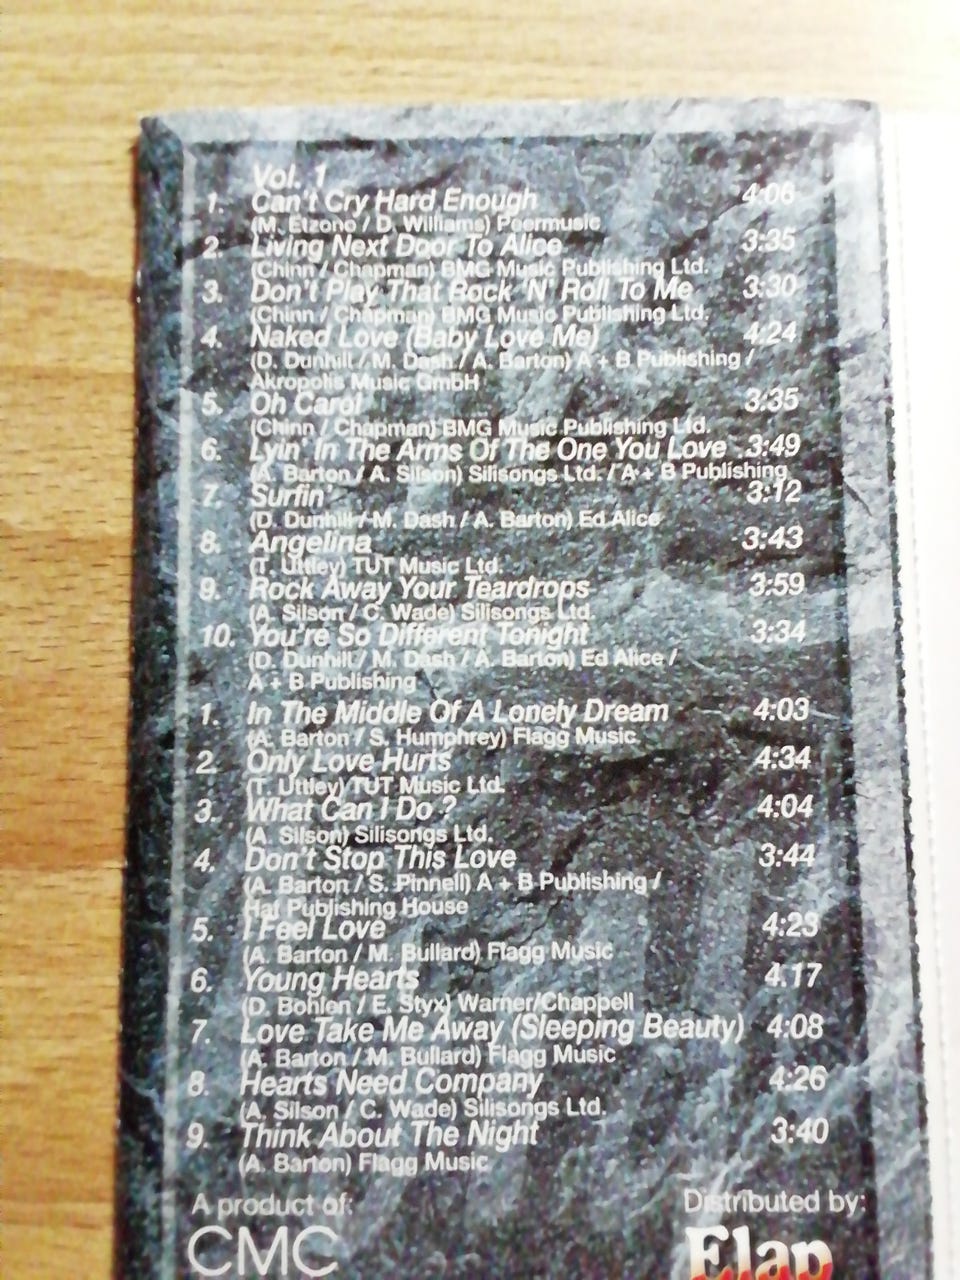 Vol. 1
1. Can't Cry Hard Enough 4:06
(M. Etzono / D. Williams) Peermusic
2. Living Next Door To Alice 3:35
(Chinn / Chapman) BMG Music Publishing Ltd.
3. Don't Play That Rock 'N' Roll To Me 3:30
(Chinn / Chapman) BMG Music Publishing Ltd.
4. Naked Love (Baby Love Me) 4:24
(D. Dunhill / M. Dash / A. Barton) A + B Publishing /
Akropolis Music GmbH
5. Oh Carol 3:35
(Chinn / Chapman) BMG Music Publishing Ltd.
6. Lyin' In The Arms Of The One You Love 3:49
(A. Barton / A. Silson) Silisongs Ltd. / A + B Publishing
7. Surfin' 3:12
(D. Dunhill / M. Dash / A. Barton) Ed Alice
8. Angelina 3:43
(T. Uttley) TUT Music Ltd.
9. Rock Away Your Teardrops 3:59
(A. Silson / C. Wade) Silisongs Ltd.
10. You're So Different Tonight 3:34
(D. Dunhill / M. Dash / A. Barton) Ed Alice /
A + B Publishing
1. In The Middle Of A Lonely Dream 4:03
(A. Barton / S. Humphrey) Flagg Music
2. Only Love Hurts 4:34
(T. Uttley) TUT Music Ltd.
3. What Can I Do ? 4:04
(A. Silson) Silisongs Ltd.
4. Don't Stop This Love 3:44
(A. Barton / S. Pinnell) A + B Publishing /
Haf Publishing House
5. I Feel Love 4:23
(A. Barton / M. Bullard) Flagg Music
6. Young Hearts 4:17
(D. Bohlen / E. Styx) Warner/Chappell
7. Love Take Me Away (Sleeping Beauty) 4:08
(A. Barton / M. Bullard) Flagg Music
8. Hearts Need Company 4:26
(A. Silson / C. Wade) Silisongs Ltd.
9. Think About The Night 3:40
(A. Barton) Flagg Music
A product of: Distributed by:
CMC Elap